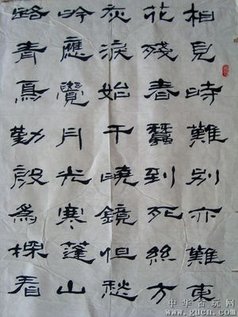 相見時難別亦難東
花殘春蠶到死絲方
灰淚始干曉鏡但愁
吟應覺月光寒蓬山
路青鳥勤殷為探看
中华古玩网
www.gucn.com